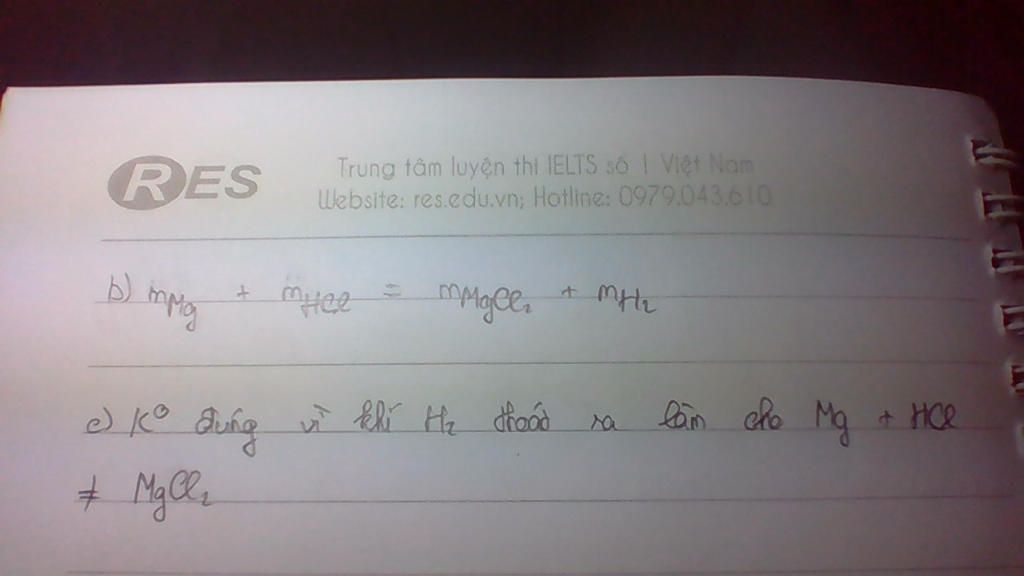 RES
Trung tâm luyện thi IELTS số 1 Việt Nam
Website: res.edu.vn; Hotline: 0979.043.610
b) mMg + mHCl = mMgCl₂ + mH₂
c) K⁰ đúng vì khí H₂ thoát ra làm cho Mg + HCl
≠ MgCl₂